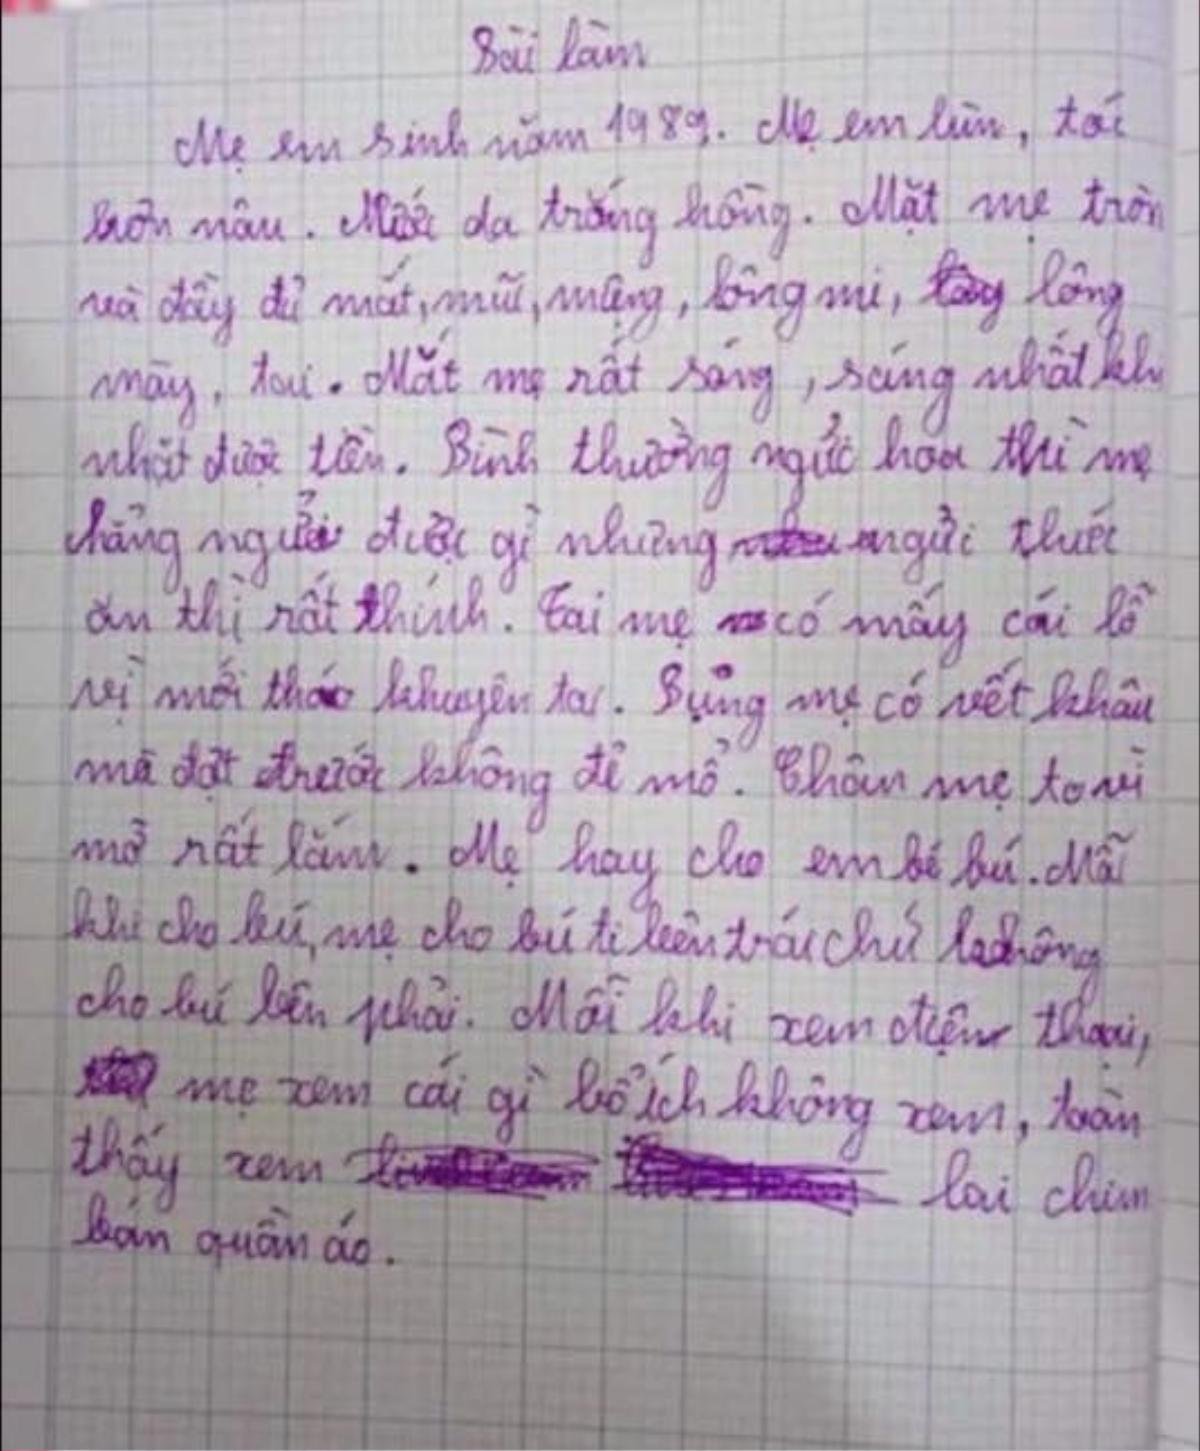 Bài làm
Mẹ em sinh năm 1989. Mẹ em lùn, tóc
hơn nâu. Nước da trắng hồng. Mặt mẹ tròn
và đầy đủ mắt, mũi, miệng, lông mi, lông
mày, tai. Mắt mẹ rất sáng, sáng nhất khi
nhặt được tiền. Bình thường ngửi hoa thì mẹ
chẳng ngửi được gì nhưng ngửi thức
ăn thì rất thính. Tai mẹ có mấy cái lỗ
vị mới tháo khuyên tai. Bụng mẹ có vết khâu
mà đặt trước không đẻ mổ. Chân mẹ to vì
mỡ rất lắm. Mẹ hay cho em bé bú. Mỗi
khi cho bú, mẹ cho bú ti bên trái chứ không
cho bú bên phải. Mỗi khi xem điện thoại,
mẹ xem cái gì bổ ích không xem, toàn
thấy xem lai chim
bán quần áo.